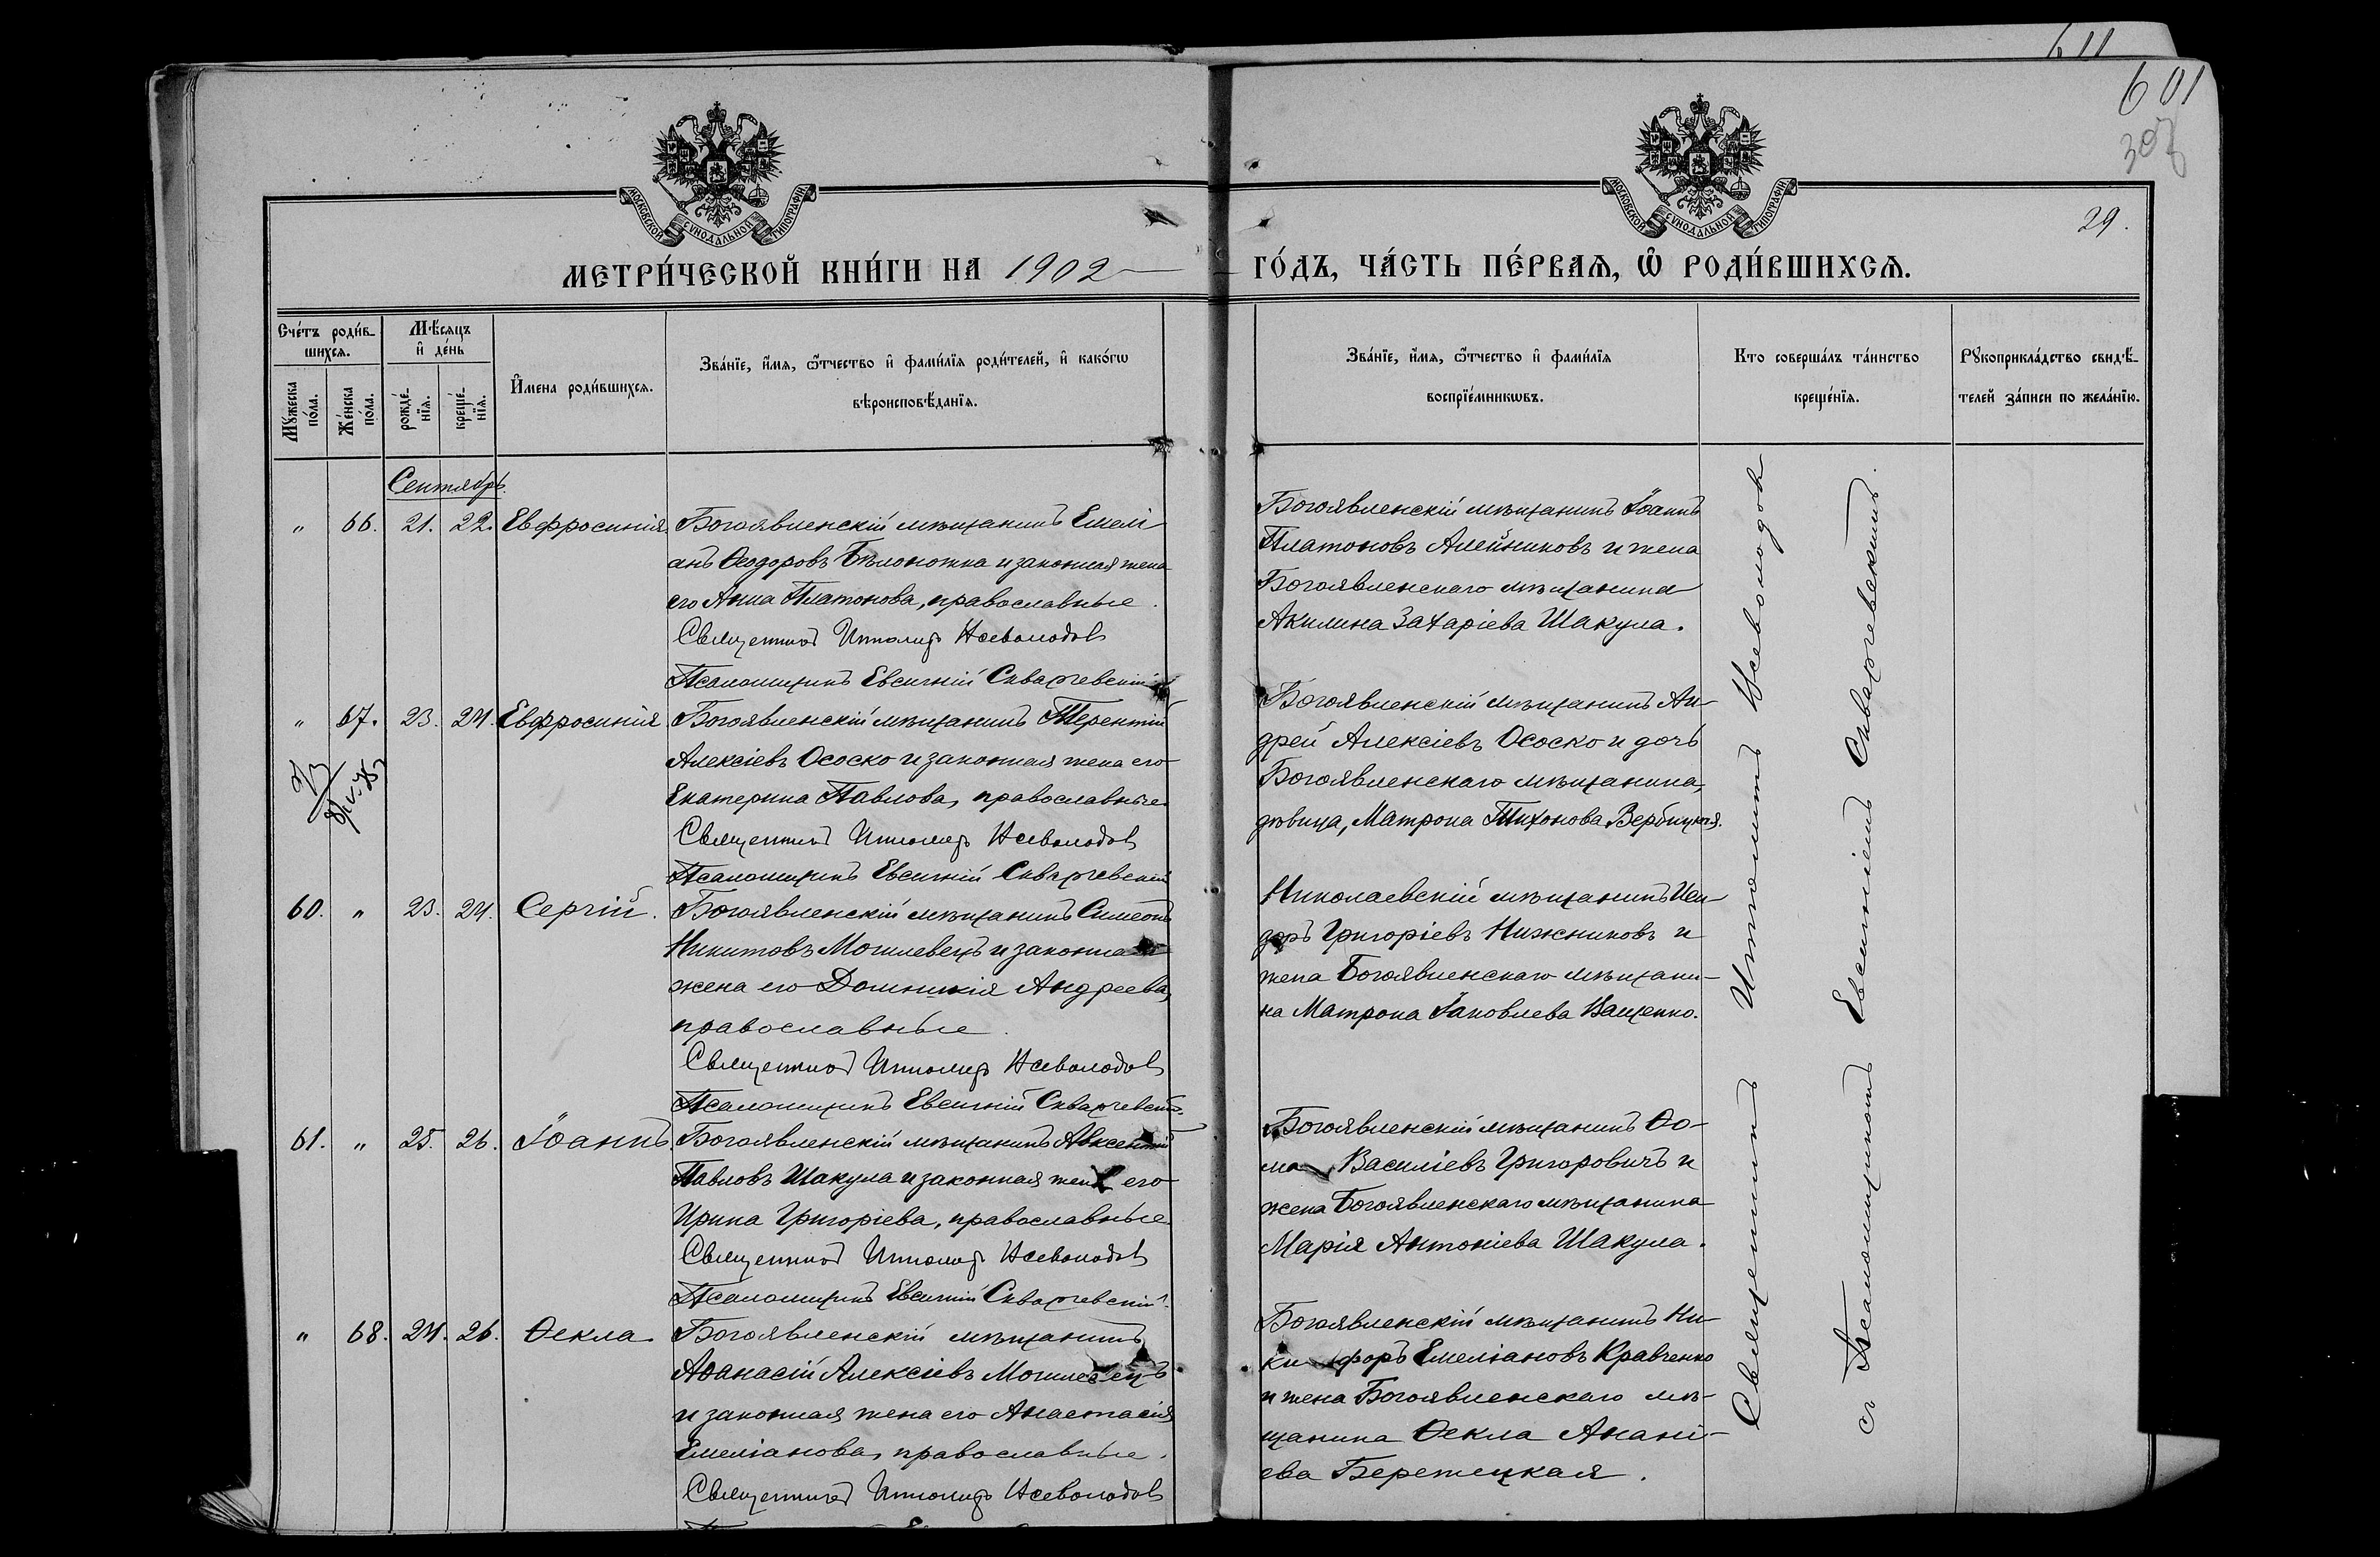 611
601
307
29.
МОСКОВСКОЙ СѴНОДАЛЬНОЙ ТИПОГРАФІИ
МОСКОВСКОЙ СѴНОДАЛЬНОЙ ТИПОГРАФІИ
МЕТРИ́ЧЕСКОЙ КНИ́ГИ НА 1902
ГО́ДЪ, ЧА́СТЬ ПЕ́РВАѦ, Ѡ҆ РОДИ́ВШИХСѦ.
Сче́тъ роди́в-
шихсѧ.
Мѣ́сѧцъ
и҆ де́нь
Мꙋ́жеска по́ла.
Же́нска по́ла.
рожде́-нїѧ.
креще́-нїѧ.
И҆мена роди́вшихсѧ.
Зва́нїе, и҆́мѧ, ѻ҆́тчество и҆ фами́лїѧ роди́телей, и҆ како́гѡ
вѣроисповѣ́данїѧ.
Зва́нїе, и҆́мѧ, ѻ҆́тчество и҆ фами́лїѧ
воспрїе́мникѡвъ.
Кто соверша́лъ та́инство
креще́нїѧ.
Рꙋкоприкла́дство свидѣ́-
телей за́писи по жела́нїю.
Сентябрь.
" 66. 21. 22. Евфросинія. Богоявленскій мѣщанинъ Емелі
анъ Ѳеодоровъ Бѣлоножка и законная жена
его Анна Платонова, православные.
Священникъ Ипполитъ Всеволодовъ
Псаломщикъ Евсигній Скваржевскій
Богоявленскій мѣщанинъ Іоаннъ
Платоновъ Алейниковъ и жена
Богоявленскаго мѣщанина
Акилина Захаріева Шакула.
" 67. 23. 24. Евфросинія Богоявленскій мѣщанинъ Терентій
Алексіевъ Ососко и законная жена его
Екатерина Павлова, православные
Священникъ Ипполитъ Всеволодовъ
Псаломщикъ Евсигній Скваржевскій
Богоявленскій мѣщанинъ Ан-
дрей Алексіевъ Ососко и дочь
Богоявленскаго мѣщанина,
дѣвица, Матрона Тихонова Вербицкая.
60. " 23. 24. Сергій. Богоявленскій мѣщанинъ Симеонъ
Никитовъ Могилевецъ и законная
жена его Домникія Андреева,
православные.
Священникъ Ипполитъ Всеволодовъ
Псаломщикъ Евсигній Скваржевскій
Николаевскій мѣщанинъ Иси-
доръ Григоріевъ Нижниковъ и
жена Богоявленскаго мѣщани-
на Матрона Іаковлева Ващенко.
61. " 25. 26. Іоаннъ. Богоявленскій мѣщанинъ Авксентій
Павловъ Шакула и законная жена его
Ирина Григоріева, православные
Священникъ Ипполитъ Всеволодовъ
Псаломщикъ Евсигній Скваржевскій.
Богоявленскій мѣщанинъ Ѳо-
ма Василіевъ Григоровичъ и
жена Богоявленскаго мѣщанина
Марія Антоніева Шакула.
" 68. 24. 26. Ѳекла Богоявленскій мѣщанинъ
Аѳанасій Алексіевъ Могилевецъ
и законная жена его Анастасія
Емеліанова, православные.
Священникъ Ипполитъ Всеволодовъ
Богоявленскій мѣщанинъ Ни-
кифоръ Емеліановъ Кравченко
и жена Богоявленскаго мѣ-
щанина Ѳекла Анані-
ева Березецкая.
Священникъ Ипполитъ Всеволодовъ
съ Псаломщикомъ Евсигніемъ Скваржевскимъ.